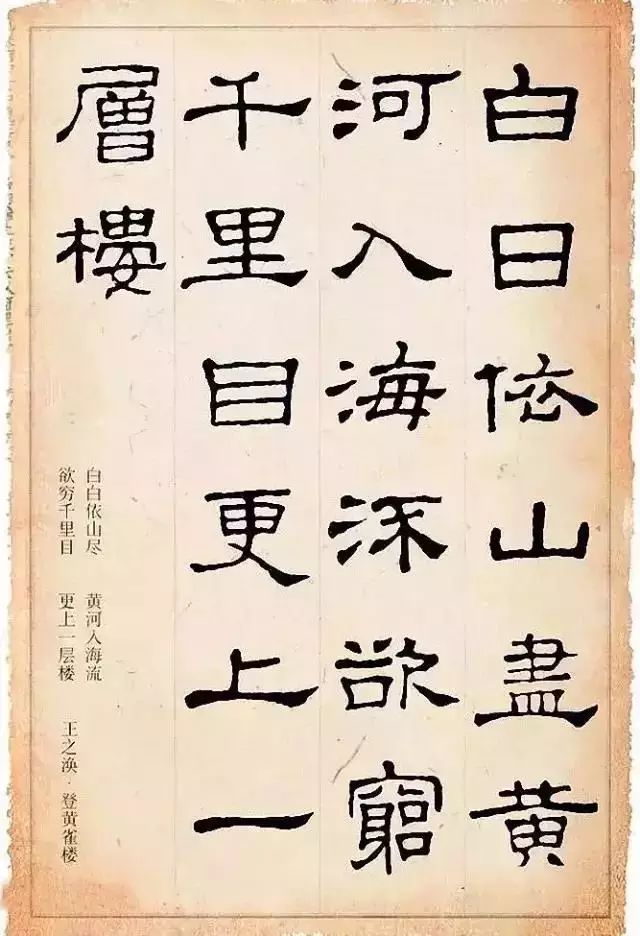 白日依山盡黄
河入海流欲窮
千里目更上一
層樓
白白依山尽　黄河入海流
欲穷千里目　更上一层楼　王之涣·登黄雀楼